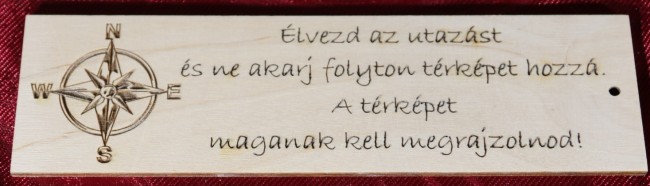 N
W E
S
Élvezd az utazást
és ne akarj folyton térképet hozzá.
A térképet
maganak kell megrajzolnod!